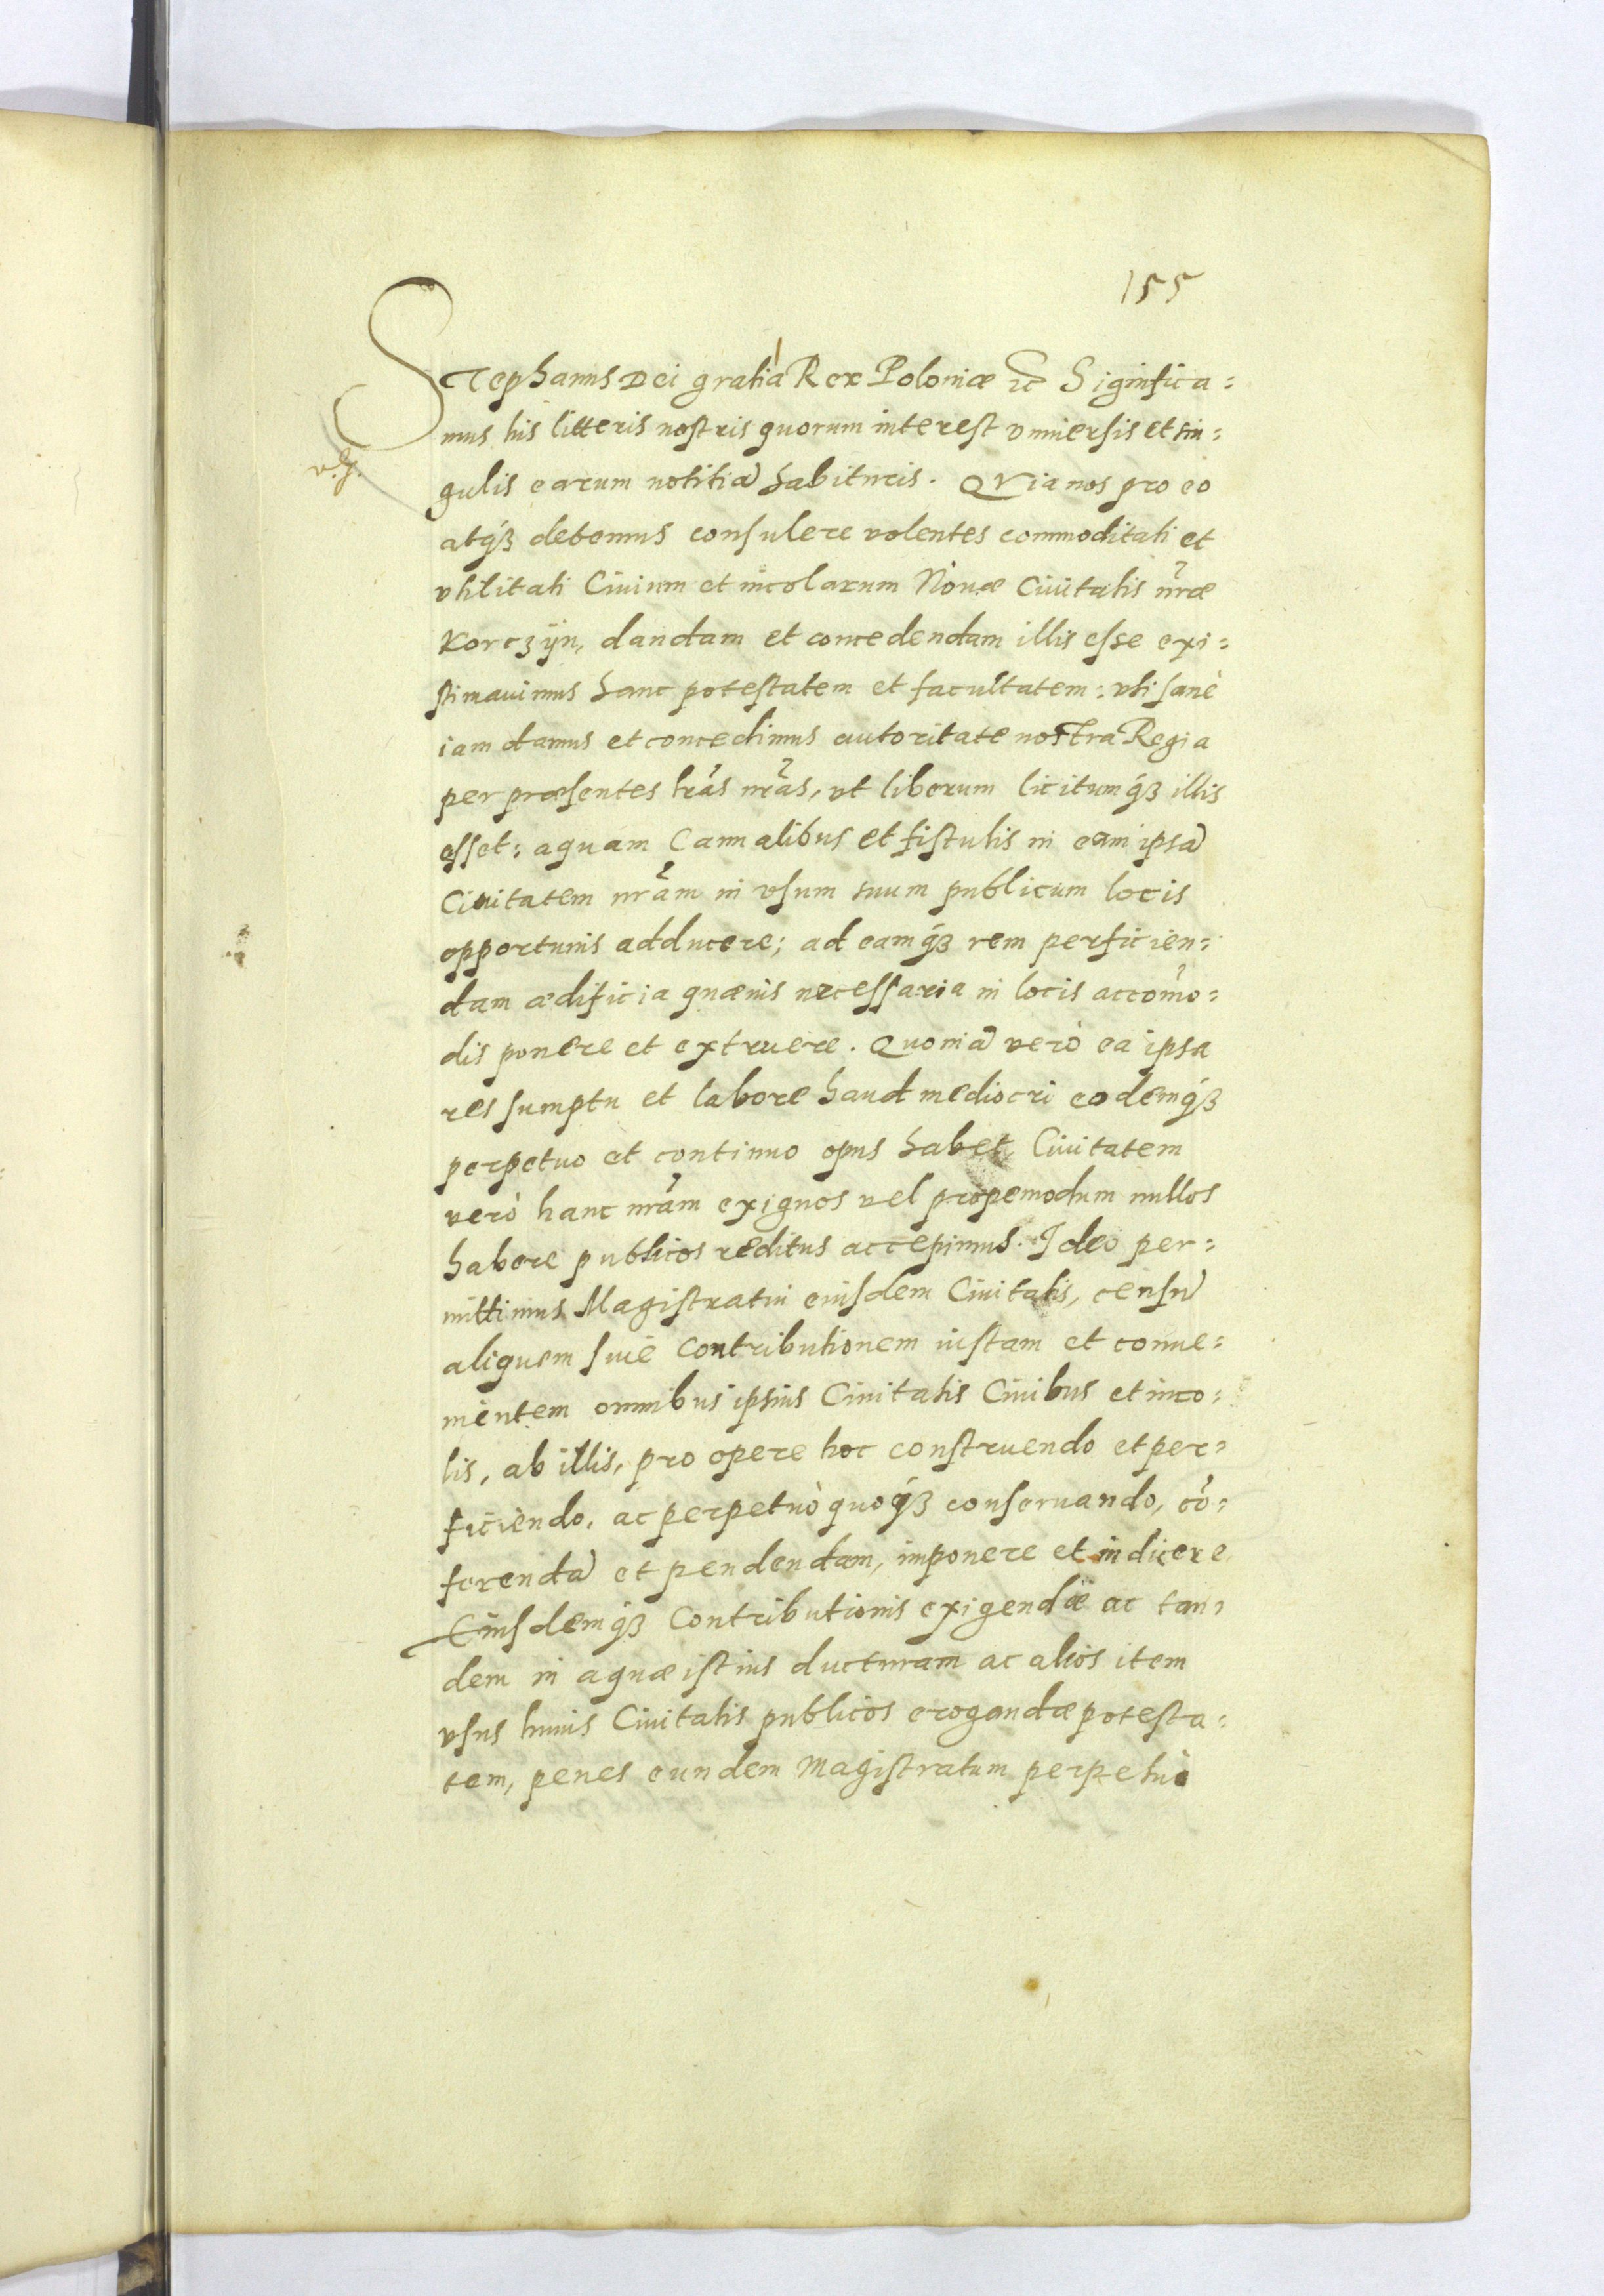 155
Stephanus Dei gratia Rex Poloniæ &c Significa=
mus his litteris nostris quorum interest vniuersis et sin=
gulis earum notitiã habituris. QVia nos pro eo
atq́ꝫ debemus consulere volentes commoditati et
vtilitati Ciuium et incolarum Nouæ Ciuitatis nr̃æ
Korczÿn, dandam et concedendam illis esse exi=
stimauimus hanc potestatem et facultatem: vti sanè
iam damus et concedimus autoritate nostra Regia
per præsentes lr̃as nr̃as, vt liberum licitumq́ꝫ illis
esset: aquam Cannalibus et fistulis in eam ipsã
Ciuitatem nr̃am in vsum suum publicum locis
opportunis adducere; ad eamq́ꝫ rem perficien=
dam ædificia quæuis necessaria in locis accom̃o=
dis ponere et extruere. Quoniã verò ea ipsa
res sumptu et labore haud mediocri eodemq́ꝫ
perpetuo et continuo opus habet, Ciuitatem
verò hanc nr̃am exiguos vel propemodum nullos
habere publicos reditus accepimus. Ideo per=
mittimus Magistratui eiusdem Ciuitatis, censũ
aliquem siue Contributionem iustam et conue=
nientem omnibus ipsius Ciuitatis Ciuibus et inco=
lis, ab illis, pro opere hoc construendo et per=
ficiendo, ac perpetuò quoq́ꝫ conseruando, cõ=
ferendã et pendendam, imponere et indicere
Eiusdemq́ꝫ Contributionis exigendæ ac tan=
dem in aquæ istius ducturam ac alios item
vsus huius Ciuitatis publicos erogandæ potesta=
tem, penes eundem Magistratum perpetuò